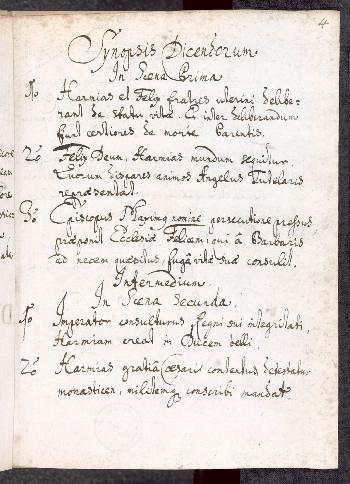 4
Synopsis Dicendorum
In Scena Prima
1o Harmias et Felix fratres uterini delibe-
rant de statu vitæ. Et inter deliberandum
fiunt certiores de morte Parentis.
2o Felix Deum, Harmias mundum sequitur.
Quorum dispares animos Angelus Tutelaris
repræsentat.
3o Episcopus Maximus nomine persecutione pressus
præponit Ecclesiæ Felicem, qui â Barbaris
ad necem quæsitus, fugâ vitæ suæ consulit.
Intermedium.
In Scena Secunda.
1o Imperator consulturus Regni sui integritati,
Harmiam creat in Ducem belli.
2o Harmias gratiâ Cæsaris contentus detestatur
monasticen, militemq conscribi mandat.